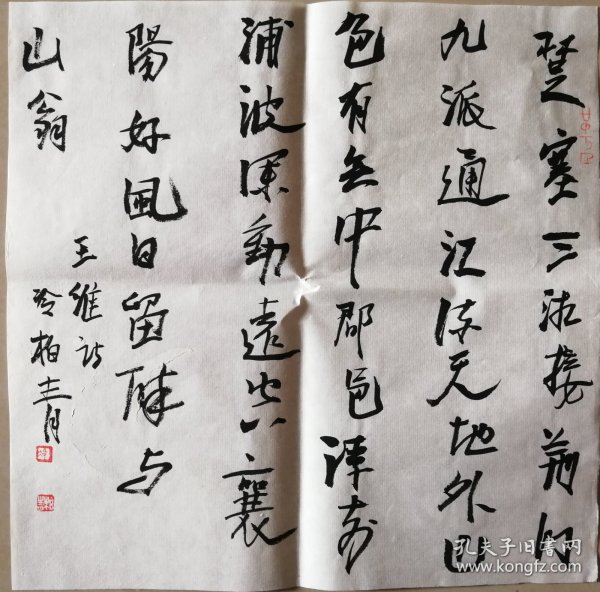 楚塞三湘接荆门
九派通江流天地外山
色有无中郡邑浮前
浦波澜動遠空襄
陽好風日留醉与
山翁
王維诗
冷柏
孔夫子旧书网
www.kongfz.com